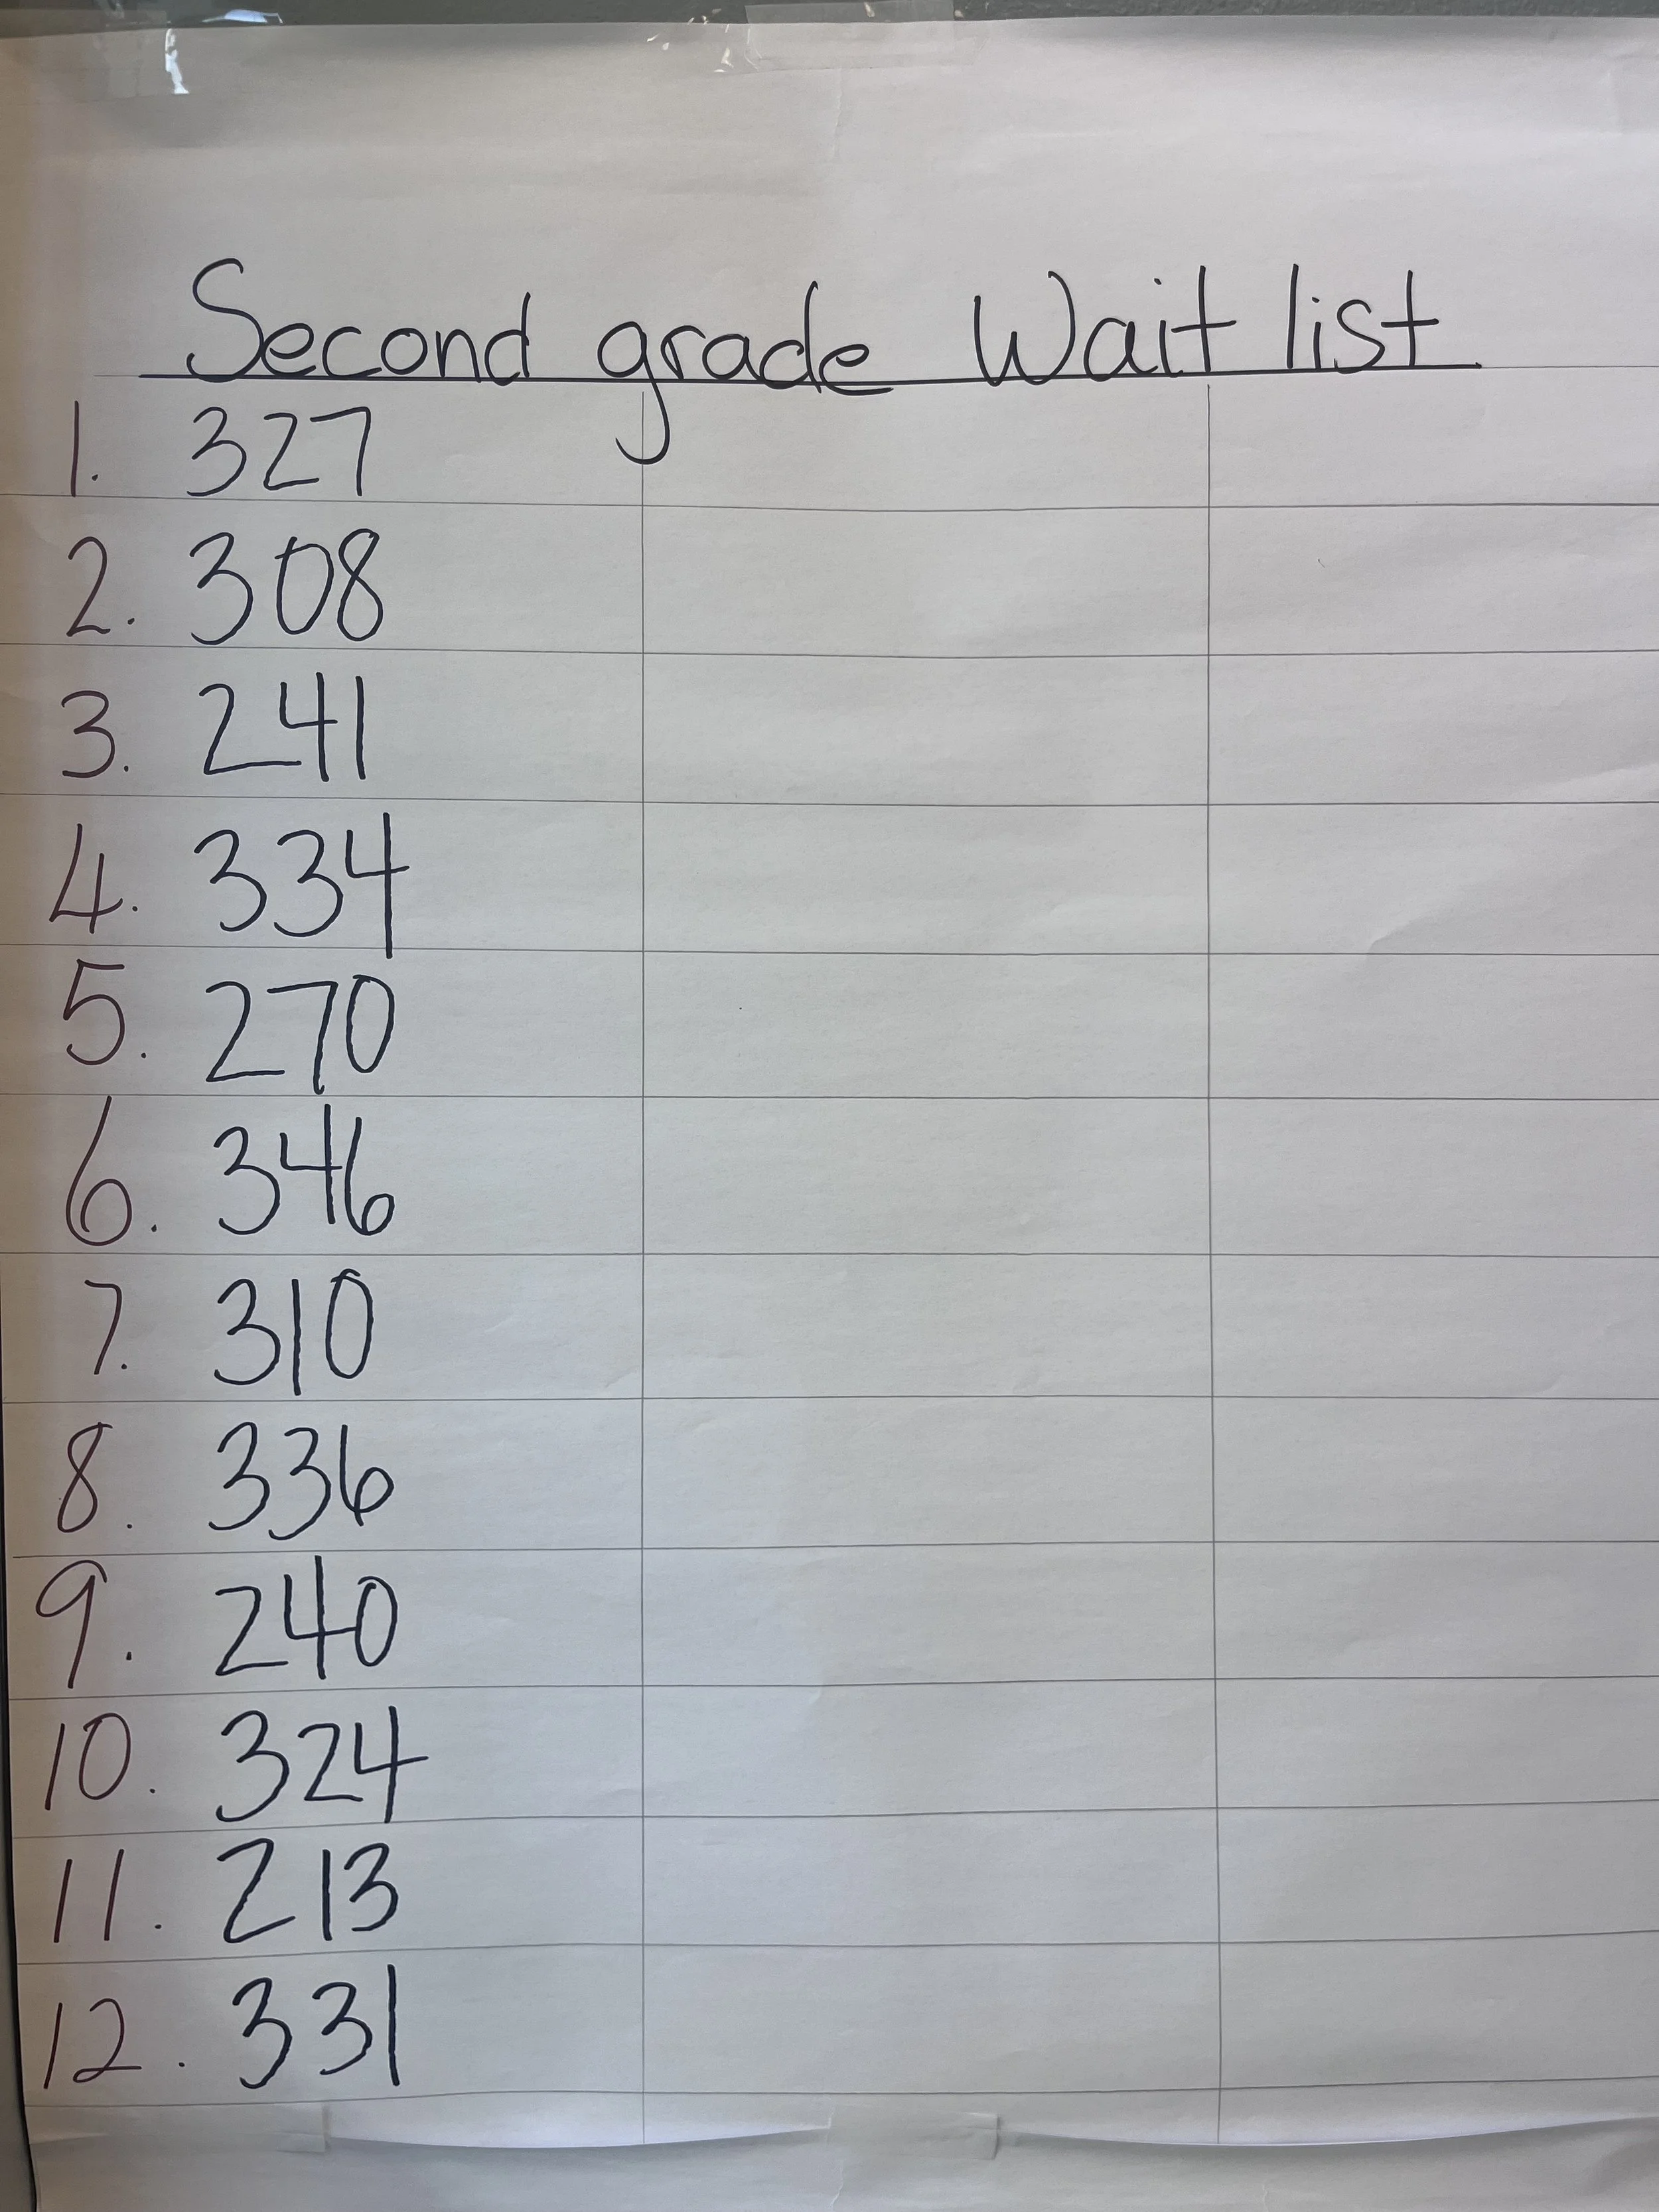 Second grade Wait list
1. 327
2. 308
3. 241
4. 334
5. 270
6. 346
7. 310
8. 336
9. 240
10. 324
11. 213
12. 331